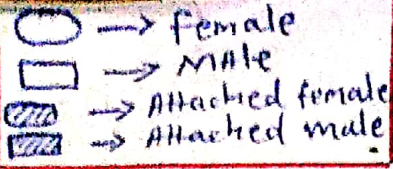 → female
→ MAle
→ Attached female
→ Attached male